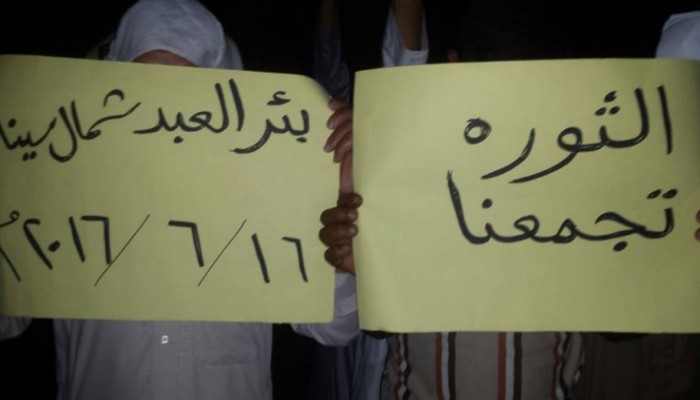 الثوره
تجمعنا
بئر العبد شمال سينا
١٦ / ٦ / ٢٠١٦ م